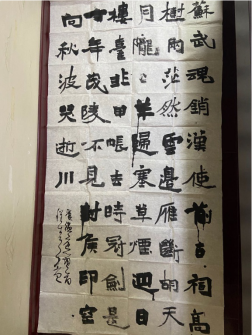 蘇武魂銷漢使前古祠高
樹兩茫然雲邊雁斷胡天
月隴上羊歸塞草煙迴日
樓臺非甲帳去時冠劍是
丁年茂陵不見封侯印空
向秋波哭逝川